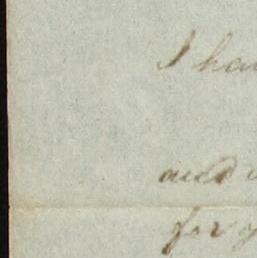 I ha
and
for y